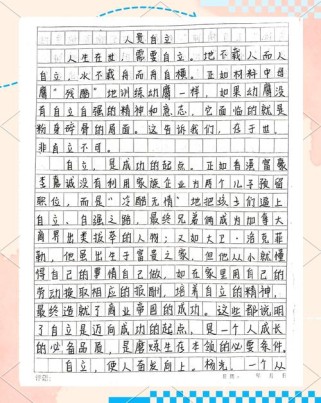 人贵自立
人生在世，需要自立。地不载人而人
自立，水不载舟而舟自横。正如材料中母
鹰“残酷”地训练幼鹰一样，如果幼鹰没
有自立自强的精神和意志，它面临的就是
粉身碎骨的局面。这告诉我们，存于世，
非自立不可。
自立，是成功的起点。正如香港富豪
李嘉诚没有利用家族企业为两个儿子预留
职位，而是“冷酷无情”地把孩子们逼上
自立、自强之路，最终兄弟俩成为加拿大
商界出类拔萃的人物；又如大卫·洛克菲
勒，他虽出生于富豪之家，但他从小就懂
得自己的事情自己做，如在家里用自己的
劳动换取相应的报酬，培养自立的精神，
最终造就了商业帝国的成功。这些都说明
了自立是迈向成功的起点，是一个人成长
的必备品质，是磨炼生存本领的必要条件。
自立，使人奋发向上。杨光，一个从
评语：
日期： 年 月 日